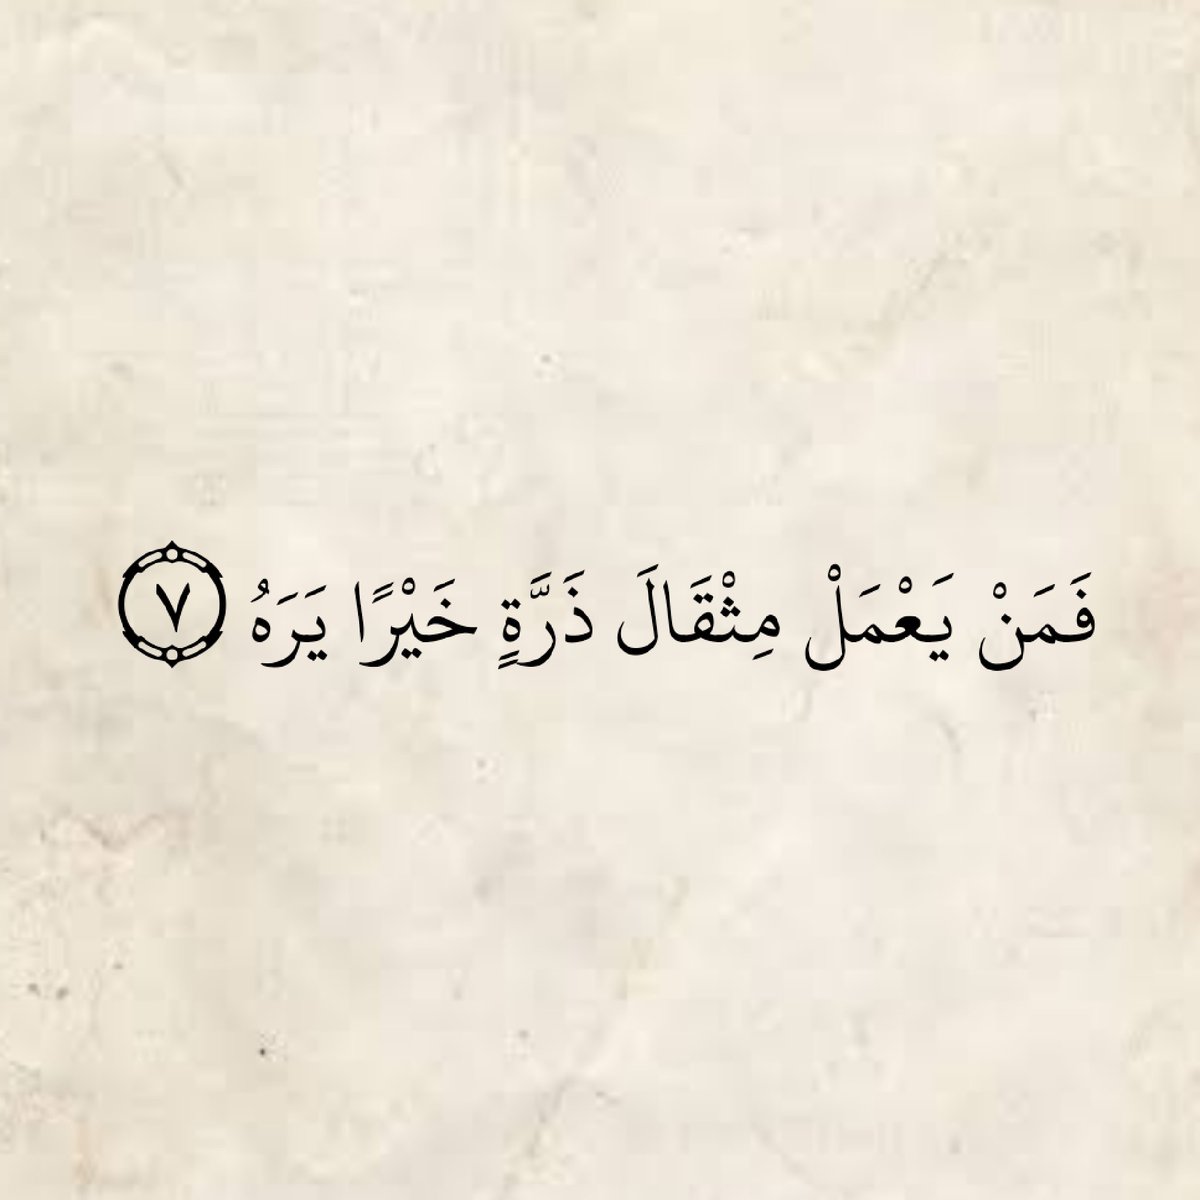 فَمَنْ يَعْمَلْ مِثْقَالَ ذَرَّةٍ خَيْرًا يَرَهُ ٧